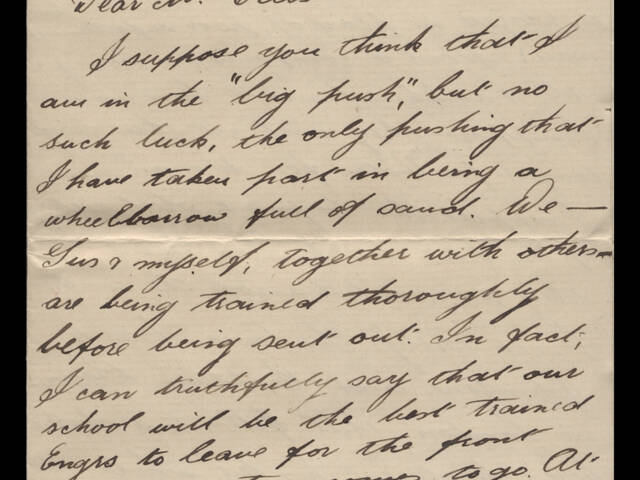 Dear Mr.
I suppose you think that I
am in the "big push", but no
such luck, the only pushing that
I have taken part in being a
wheelbarrow full of sand. We —
Gus & myself, together with others —
are being trained thoroughly
before being sent out. In fact,
I can truthfully say that our
school will be the best trained
Engrs to leave for the front
to go. At